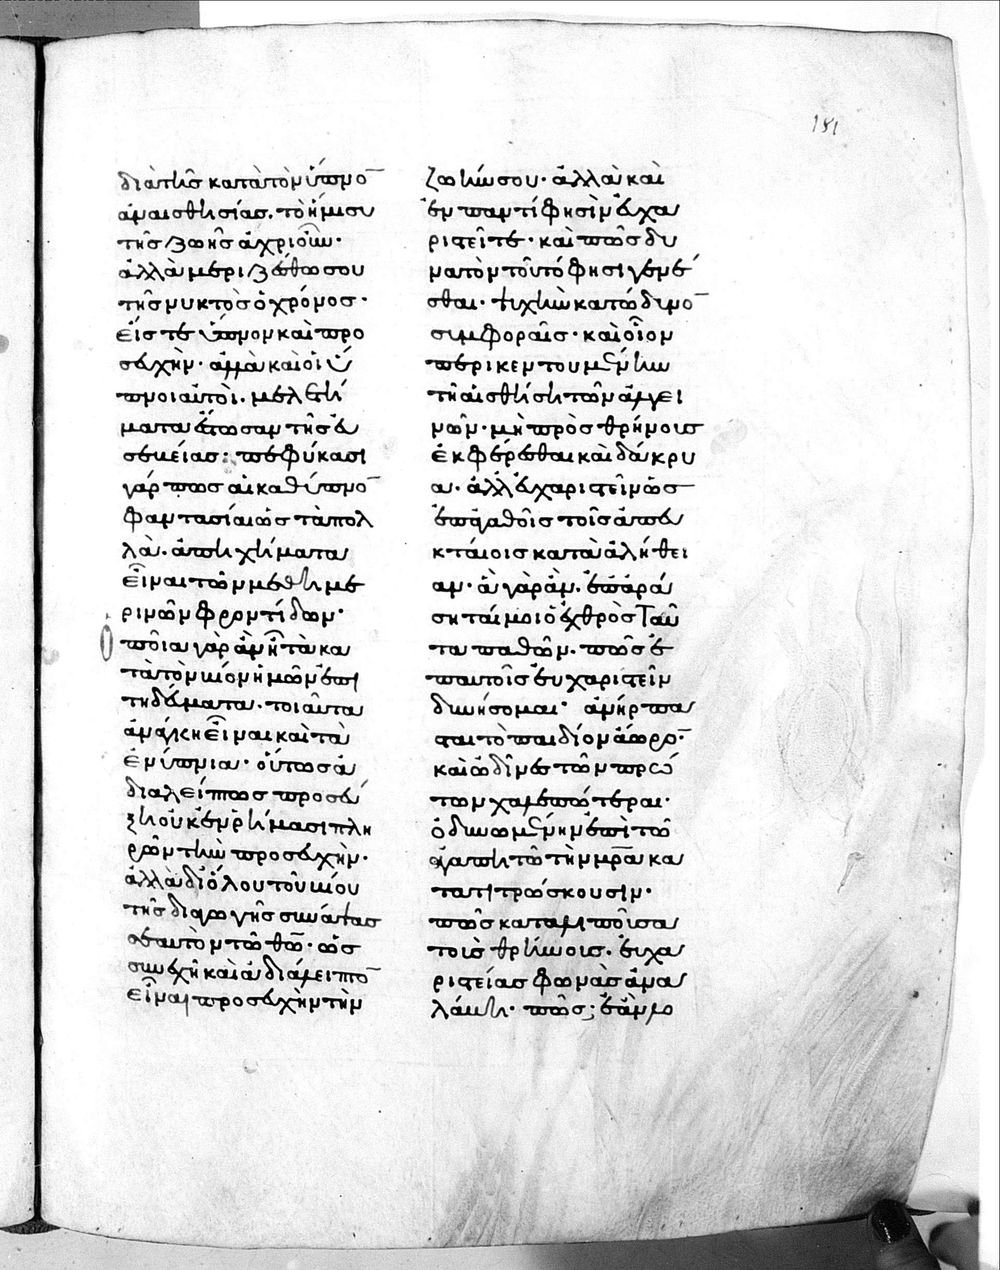 181
διὰ τῆς κατὰ τὸν ὕπνο̅
ἀναισθησίας. τὸ ἥμισυ
τῆς ζωῆς ἀχριοῦν·
ἀλλὰ μεριζέσθω σου
τῆς νυκτὸς ὁ χρόνος·
εἴς τε ὕπνον καὶ προ
σευχήν· ἀλλὰ καὶ οἱ ὕ
πνοι αὐτοὶ. μελετή
ματα ἔστωσαν τῆς εὐ
σεβείας: πεφύκασι
γάρ πως αἱ καθ ὕπνο̅
φαντασίαι ὡς τὰ πολ
λὰ. ἀπηχήματα
εἶναι τῶν μεθημε
ρινῶν φροντίδων·
ποῖα γὰρ ἂν ῇ τὰ κα
τὰ τὸν βίον ἡμῶν ἐπι
τηδεύματα. τοιαῦτα
ἀνάγκη εἶναι καὶ τὰ
ἐνύπνια· οὕτως ἀ
διαλείπτως προσεύ
ξη οὐκ ἐν ῥήμασι πλη
ρῶν τὴν προσευχὴν·
ἀλλὰ δι ὅλου τοῦ βίου
τῆς διαγωγῆς συνάπτας
σεαυτὸν τῶ θω̅· ὡς
συνεχῆ καὶ ἀδιάλειπτο̅
εἶναι προσευχὴν τὴν
ζωήν σου· ἀλλὰ καὶ
ἐν παντί φησὶν εὐχα
ριστεῖτε· καὶ πῶς δυ
νατὸν τοῦτό φησι γενέ
σθαι· ψυχὴν κατωδυνο̅
συμφοραῖς· καὶ οἷον
περικεντουμένην
τῆ αἰσθήσει τῶν ἀλγει
νῶν· μὴ πρὸς θρήνοις
ἐκφέρεσθαι καὶ δάκρυ
α· ἀλλ εὐχαριστεῖν ὡς
ἐπ ἀγαθοῖς τοῖς ἀπευ
κταίοις κατὰ ἀλήθει
αν· ἃ γὰρ ἂν. ἐπαρά
σηταί μοι ὁ ἐχθρὸς ταῦ
τα παθῶν. πῶς ἐ
π αυτοῖς εὐχαριστεῖν
δυνήσομαι· ἀνήρπα
σται τὸ παιδίον ἄωρο̅·
καὶ ὠδῖνες τῶν πρώ
των χαλεπώτεραι·
ὀδυνωμένην ἐπὶ τῶ
ἀγαπητῶ τὴν μρ̅α κα
τατιτρώσκουσιν·
πῶς καταλιποῦσα
τοὺς θρήνους. εὐχα
ριστείας φωνὰς ἀνα
λάβη· πῶς; ἐὰν λο